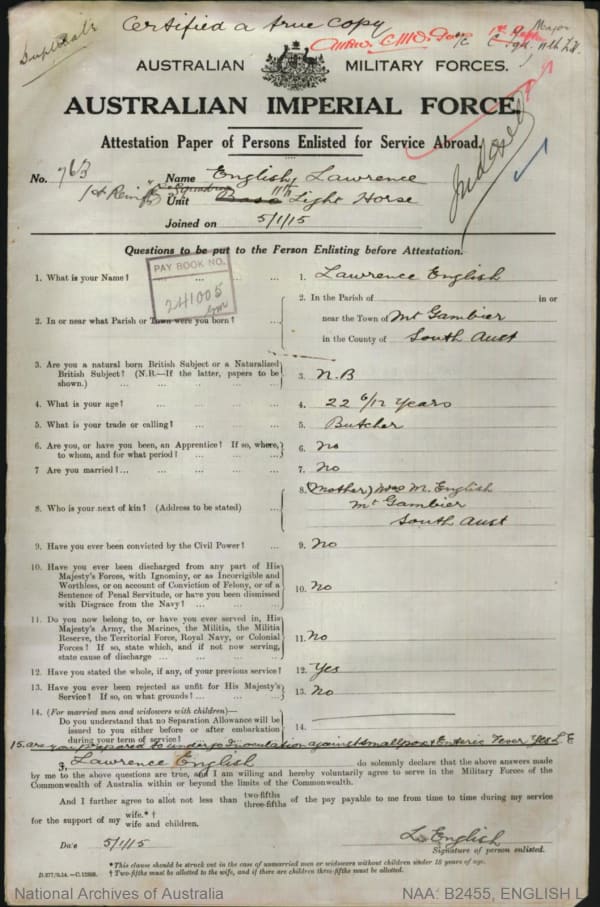 Duplicate
Certified a true Copy
Major
AUSTRALIAN MILITARY FORCES.
AUSTRALIAN IMPERIAL FORCE.
Attestation Paper of Persons Enlisted for Service Abroad.
Indexed
No. 763 Name English, Lawrence
1st Reinfts Unit Base 11th Light Horse
Joined on 5/1/15
Questions to be put to the Person Enlisting before Attestation.
PAY BOOK NO.
241005
1. What is your Name? ... 1. Lawrence English
2. In or near what Parish or Town were you born? ... 2. In the Parish of in or
near the Town of Mt Gambier
in the County of South Aust
3. Are you a natural born British Subject or a Naturalized
British Subject? (N.B.—If the latter, papers to be
shown.) ... 3. N.B
4. What is your age? ... 4. 22 6/12 Years
5. What is your trade or calling? ... 5. Butcher
6. Are you, or have you been, an Apprentice? If so, where,
to whom, and for what period? ... 6. No
7. Are you married?... 7. No
8. Who is your next of kin? (Address to be stated) ... 8. (Mother) Mrs M. English
Mt Gambier
South Aust
9. Have you ever been convicted by the Civil Power? ... 9. No
10. Have you ever been discharged from any part of His
Majesty's Forces, with Ignominy, or as Incorrigible and
Worthless, or on account of Conviction of Felony, or of a
Sentence of Penal Servitude, or have you been dismissed
with Disgrace from the Navy? ... 10. No
11. Do you now belong to, or have you ever served in, His
Majesty's Army, the Marines, the Militia, the Militia
Reserve, the Territorial Force, Royal Navy, or Colonial
Forces? If so, state which, and if not now serving,
state cause of discharge ... 11. No
12. Have you stated the whole, if any, of your previous service? 12. Yes
13. Have you ever been rejected as unfit for His Majesty's
Service? If so, on what grounds? ... 13. No
14. (For married men and widowers with children)—
Do you understand that no Separation Allowance will be
issued to you either before or after embarkation
during your term of service? 14.
15. are you prepared to undergo Inoculation against Smallpox & Enteric Fever Yes L E
I, Lawrence English do solemnly declare that the above answers made
by me to the above questions are true, and I am willing and hereby voluntarily agree to serve in the Military Forces of the
Commonwealth of Australia within or beyond the limits of the Commonwealth.
And I further agree to allot not less than two-fifths three-fifths of the pay payable to me from time to time during my service
for the support of my wife.*† wife and children.
Date 5/1/15 L. English
Signature of person enlisted.
*This clause should be struck out in the case of unmarried men or widowers without children under 18 years of age.
† Two-fifths must be allotted to the wife, and if there are children three-fifths must be allotted.
National Archives of Australia NAA: B2455, ENGLISH L